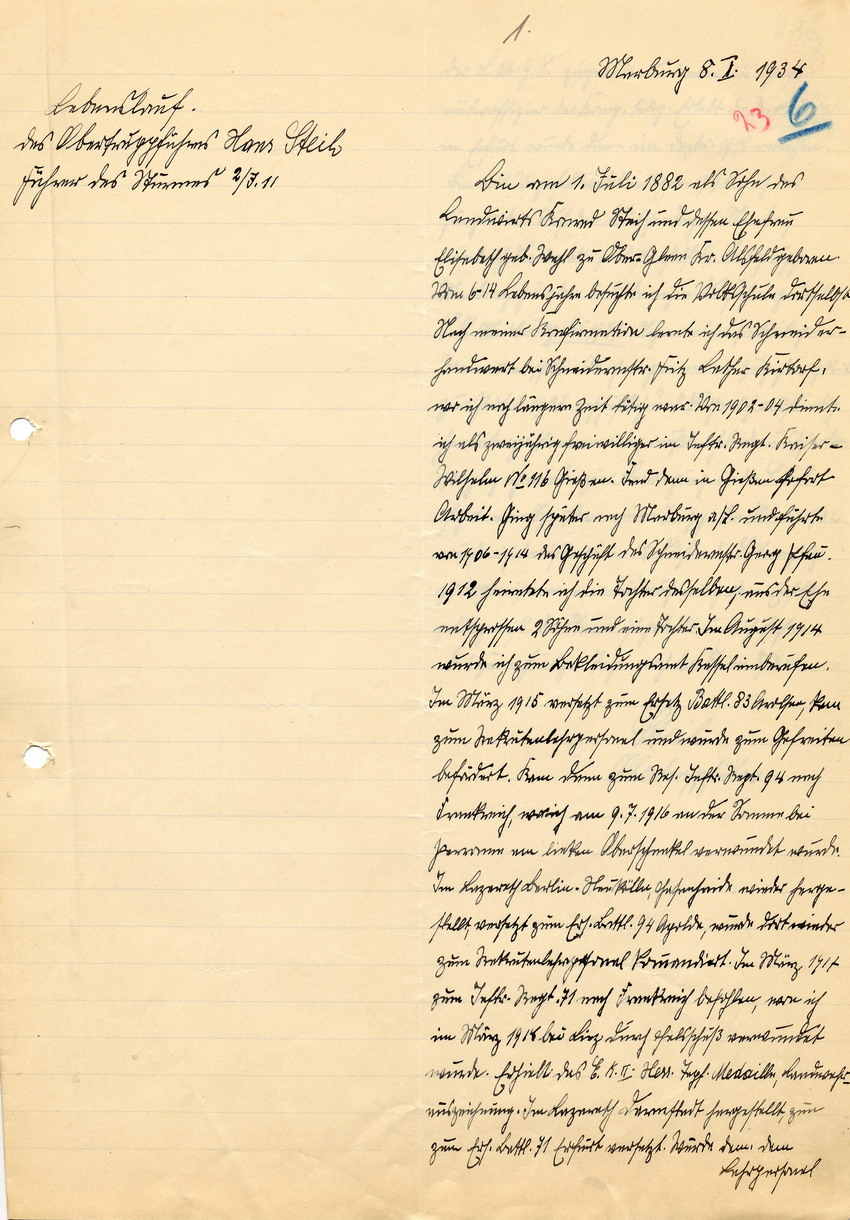 1.
Marburg 8. I. 1934
23 6
Lebenslauf.
des Obertruppführers Hans Steih
Führer des Sturmes 2/J. 11
Bin am 1. Juli 1882 als Sohn des
Landwirts Konrad Steih und dessen Ehefrau
Elisabeth geb. Wahl zu Ober-Gleen Kr. Alsfeld geboren.
Vom 6-14 Lebensjahre besuchte ich die Volksschule dortselbst
Nach meiner Konfirmation lernte ich das Schneider-
handwerk bei Schneidermstr. Fritz Luther Kirtorf,
wo ich noch längere Zeit tätig war. Von 1902-04 diente
ich als zweijährig freiwilliger im Inftr. Regt. Kaiser-
Wilhelm No 116 Gießen. Fand dann in Gießen sofort
Arbeit. Ging später nach Marburg a/L. und führte
von 1906-1914 das Geschäft des Schneidermstr. Georg Pfau.
1912 heiratete ich die Tochter desselben, aus der Ehe
entsprossen 2 Söhne und eine Tochter. Im August 1914
wurde ich zum Bekleidungsamt Kassel einberufen.
Im März 1915 versetzt zum Ersatz Batl. 83 Arolsen, kam
zum Rekrutenlehrpersonal und wurde zum Gefreiten
befördert. Kam dann zum Res. Inftr. Regt. 94 nach
Frankreich, wo ich am 9.7.1916 an der Somme bei
Peronne am linken Oberschenkel verwundet wurde.
Im Lazareth Berlin-Neukölln, Hasenheide wieder herge-
stellt, versetzt zum Ers. Batl. 94 Apolda, wurde dort wieder
zum Rekrutenlehrpersonal komandiert. Im März 1917
zum Inftr. Regt. 71 nach Frankreich befohlen, wo ich
im März 1918 bei durch Halsschuß verwundet
wurde. Erhielt das E. K. II. Hess. Tapf. Medaille, Landwehr-
auszeichnung. Im Lazareth Darmstadt hergestellt,
zum Ers. Batl. 71 Erfurt versetzt. Wurde dem
Lehrpersonal